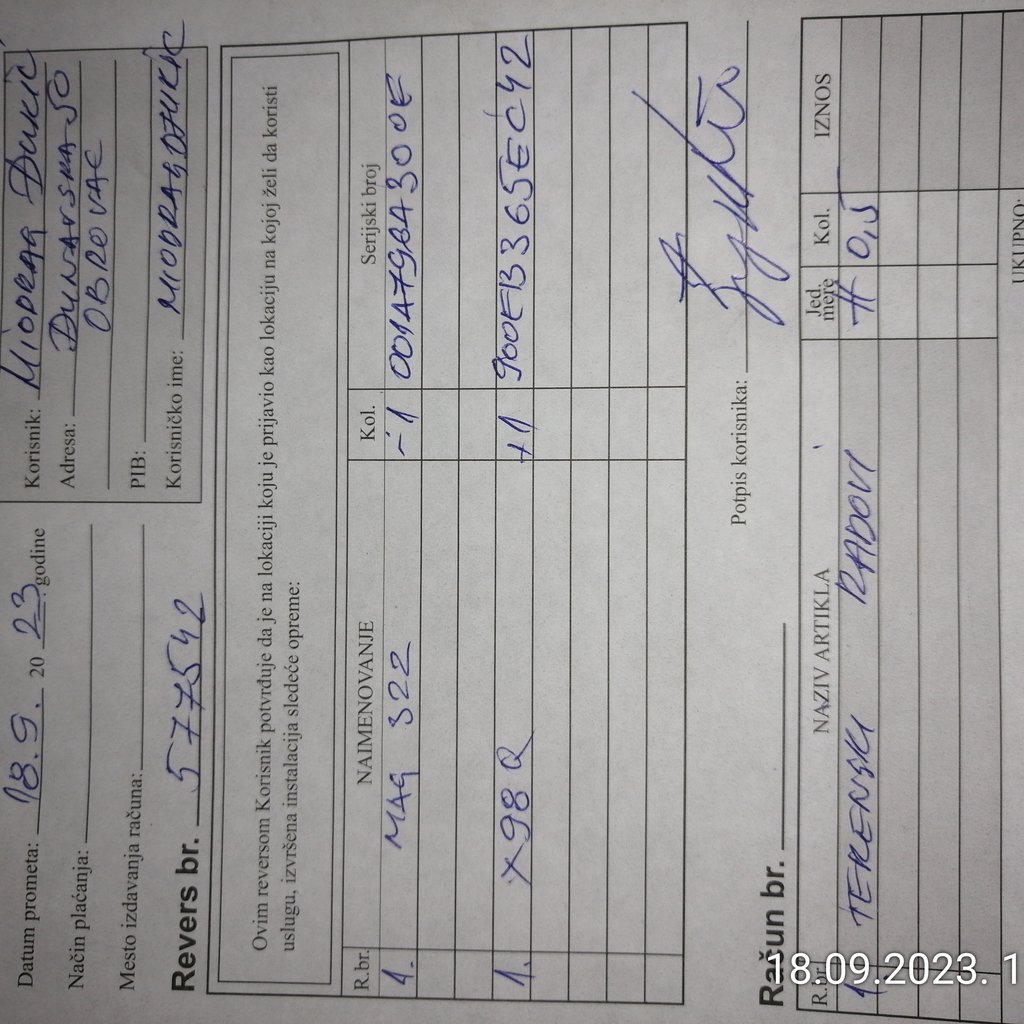 Datum prometa: 18.9. 2023. godine
Način plaćanja:
Mesto izdavanja računa:
Korisnik: MIODRAG ĐUKIĆ
Adresa: DUNAVSKA 50
OBROVAC
PIB:
Korisničko ime: MIODRAGDJUKIC
Revers br. 577542
Ovim reversom Korisnik potvrđuje da je na lokaciji koju je prijavio kao lokaciju na kojoj želi da koristi
uslugu, izvršena instalacija sledeće opreme:
R.br. NAIMENOVANJE Kol. Serijski broj
1. MAG 322 -1 001A79BA300E
1. X98Q +1 900EB365EC42
Potpis korisnika:
Račun br.
R.br. NAZIV ARTIKLA Jed. mere Kol. IZNOS
1. TERENSKI RADOVI H 0,5
UKUPNO:
18.09.2023. 1